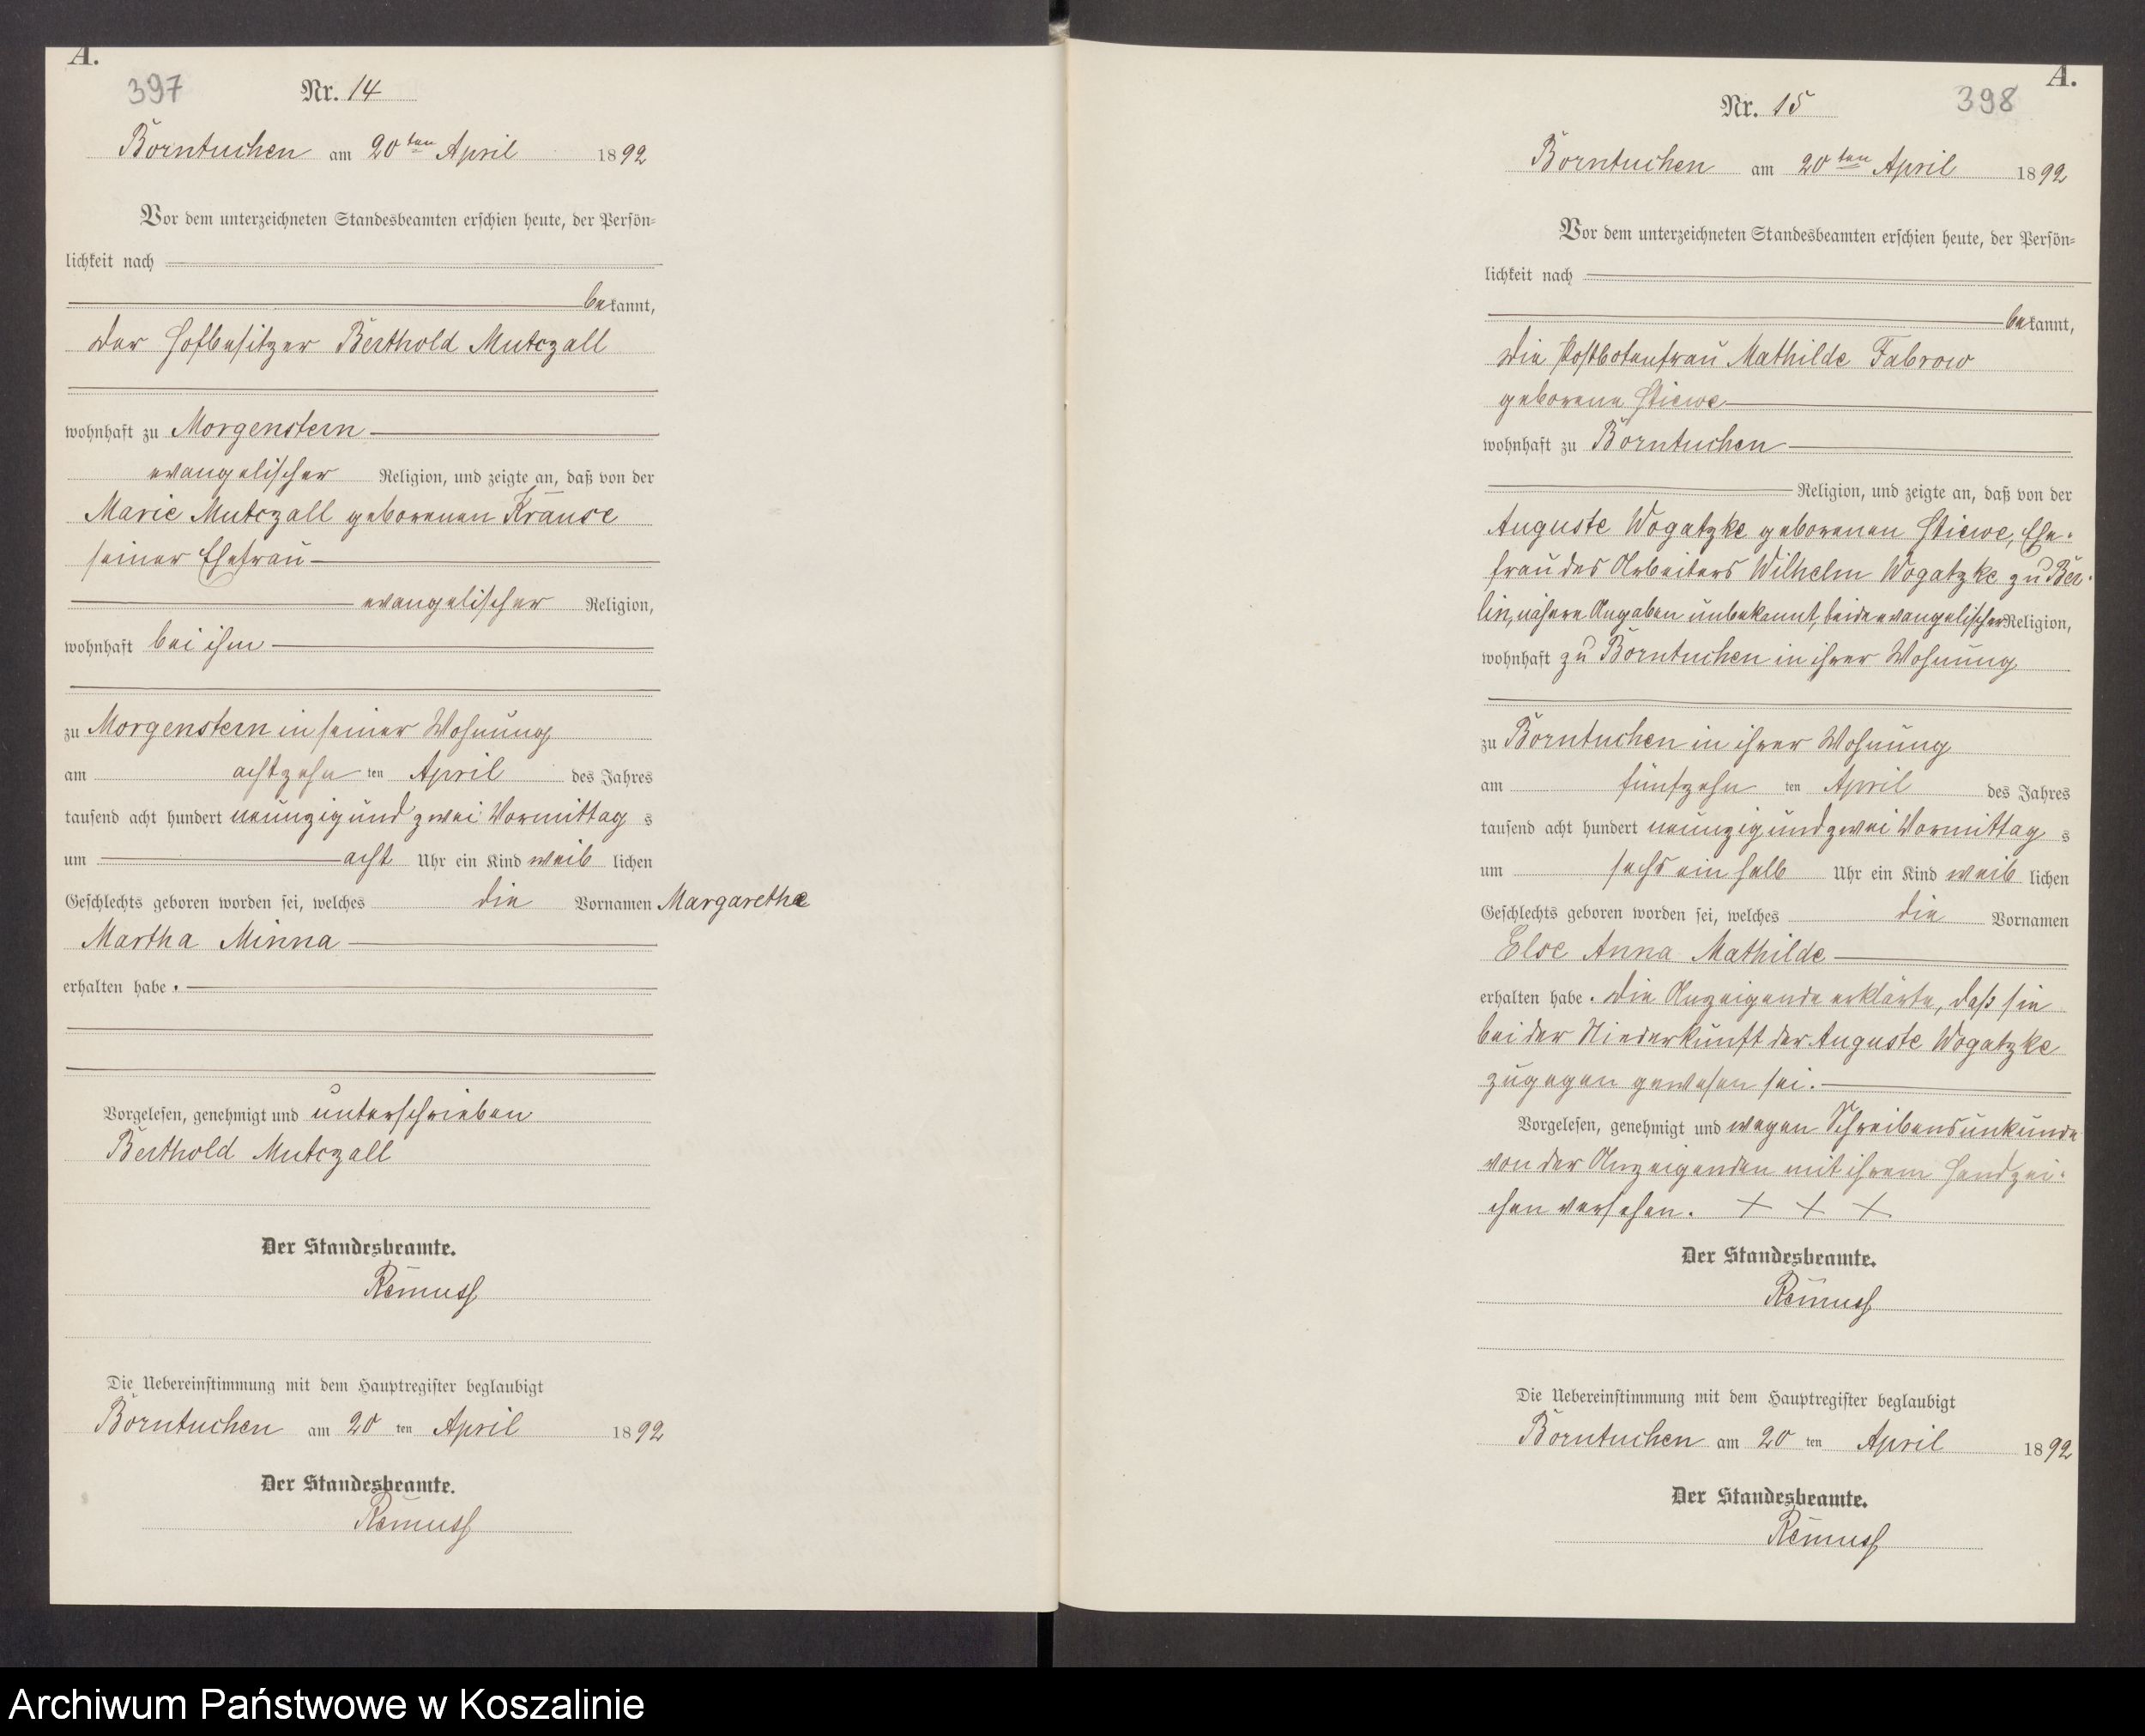 A.
397
Nr. 14
Borntuchen am 20ten April 1892
Vor dem unterzeichneten Standesbeamten erschien heute, der Persön-
lichkeit nach
bekannt,
der Hofbesitzer Berthold Mutczall
wohnhaft zu Morgenstern
evangelischer Religion, und zeigte an, daß von der
Marie Mutczall geborenen Krause
seiner Ehefrau
evangelischer Religion,
wohnhaft bei ihm
zu Morgenstern in seiner Wohnung
am achtzehn ten April des Jahres
tausend acht hundert neunzig und zwei Vormittag s
um acht Uhr ein Kind weib lichen
Geschlechts geboren worden sei, welches die Vornamen Margarethe
Martha Minna
erhalten habe.
Vorgelesen, genehmigt und unterschrieben
Berthold Mutczall
Der Standesbeamte.
Remuss
Die Uebereinstimmung mit dem Hauptregister beglaubigt
Borntuchen am 20 ten April 1892
Der Standesbeamte.
Remuss
A.
398
Nr. 15
Borntuchen am 20ten April 1892
Vor dem unterzeichneten Standesbeamten erschien heute, der Persön-
lichkeit nach
bekannt,
die Postbotenfrau Mathilde Fabrow
geborene Stiewe
wohnhaft zu Borntuchen
Religion, und zeigte an, daß von der
Auguste Wogatzke geborenen Stiewe, Ehe-
frau des Arbeiters Wilhelm Wogatzke zu Ber-
lin, nähere Angaben unbekannt, beide evangelischer Religion,
wohnhaft zu Borntuchen in ihrer Wohnung
zu Borntuchen in ihrer Wohnung
am fünfzehn ten April des Jahres
tausend acht hundert neunzig und zwei Vormittag s
um sechs ein halb Uhr ein Kind weib lichen
Geschlechts geboren worden sei, welches die Vornamen
Else Anna Mathilde
erhalten habe. Die Anzeigende erklärte, daß sie
bei der Niederkunft der Auguste Wogatzke
zugegen gewesen sei.
Vorgelesen, genehmigt und wegen Schreibensunkunde
von der Anzeigenden mit ihrem Handzei-
chen versehen. + + +
Der Standesbeamte.
Remuss
Die Uebereinstimmung mit dem Hauptregister beglaubigt
Borntuchen am 20 ten April 1892
Der Standesbeamte.
Remuss
Archiwum Państwowe w Koszalinie